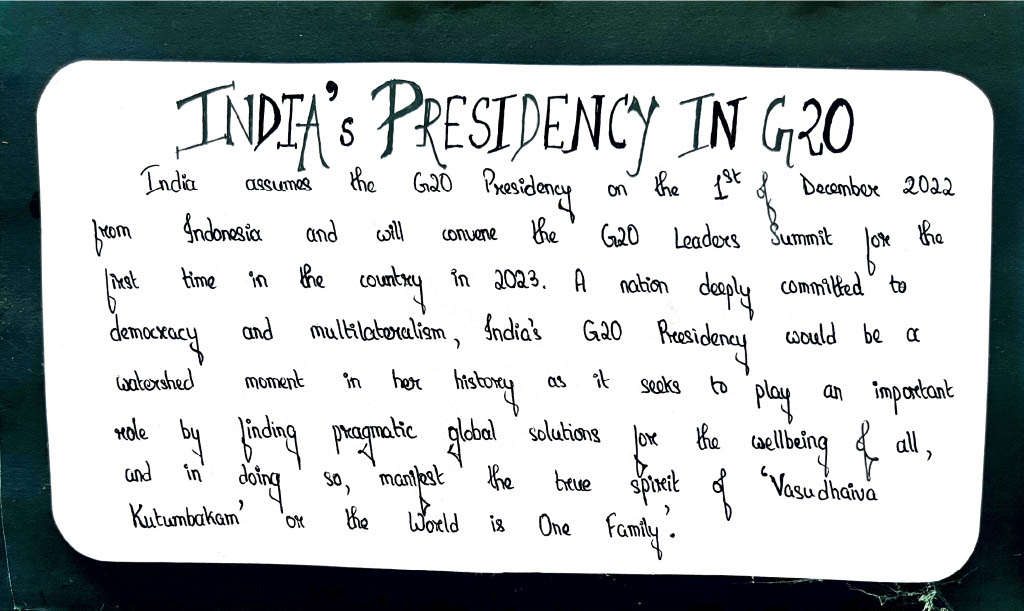 INDIA's PRESIDENCY IN G20
India assumes the G20 Presidency on the 1st of December 2022
from Indonesia and will convene the G20 Leaders Summit for the
first time in the country in 2023. A nation deeply committed to
democracy and multilateralism, India's G20 Presidency would be a
watershed moment in her history as it seeks to play an important
role by finding pragmatic global solutions for the wellbeing of all,
and in doing so, manifest the true spirit of 'Vasudhaiva
Kutumbakam' or the World is One Family'.